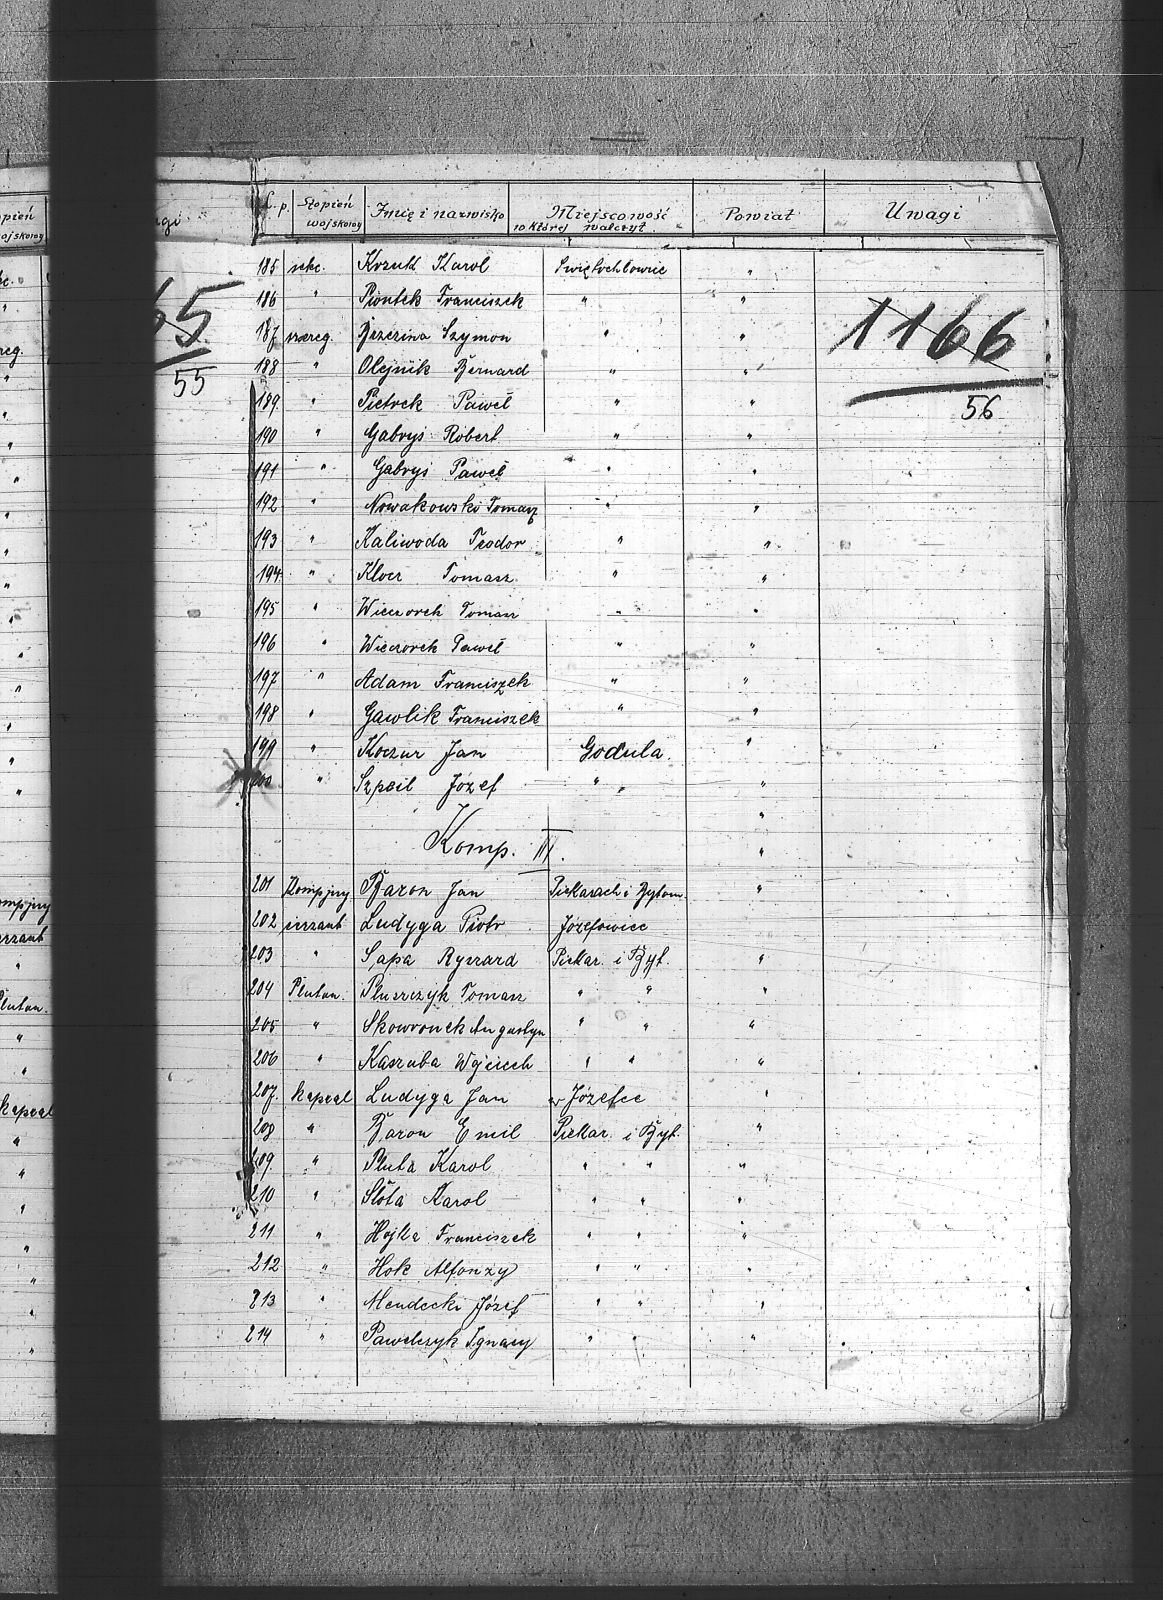 L. p. Stopień wojskowy Imię i nazwisko Miejscowość w której walczył. Powiat Uwagi
185 sekc. Krzuk Karol Świętochłowic "
186 " Piontek Franciszek " "
187 szereg. Brzezina Szymon " "
188 " Olejnik Bernard " "
189 " Pietrek Paweł " "
190 " Gabryś Robert " "
191 " Gabryś Paweł " "
192 " Nowakowski Tomasz " "
193 " Kaliwoda Teodor " "
194 " Klocz Tomasz " "
195 " Wieczorek Tomasz " "
196 " Wieczorek Paweł " "
197 " Adam Franciszek " "
198 " Gawlik Franciszek " "
199 " Koczur Jan Godula "
200 " Szpeil Józef " "
Komp. III.
201 Kompjny Baron Jan Piekarach i Bytom "
202 sierzant Ludyga Piotr Józefowice
203 " Sapa Ryszard Piekar. i Byt. "
204 Pluton. Pluszczyk Tomasz " " "
205 " Skowronek Augustyn " " "
206 " Kaszuba Wojciech " " "
207. kapral Ludyga Jan w Józefce "
208 " Baron Emil Piekar. i Byt. "
209 " Pluta Karol " " "
210 " Slota Karol " " "
211 " Hojka Franciszek " " "
212 " Hok Alfonzy " " "
213 " Mendecki Józef " " "
214 " Pawelczyk Ignacy " " "
1166
56
55